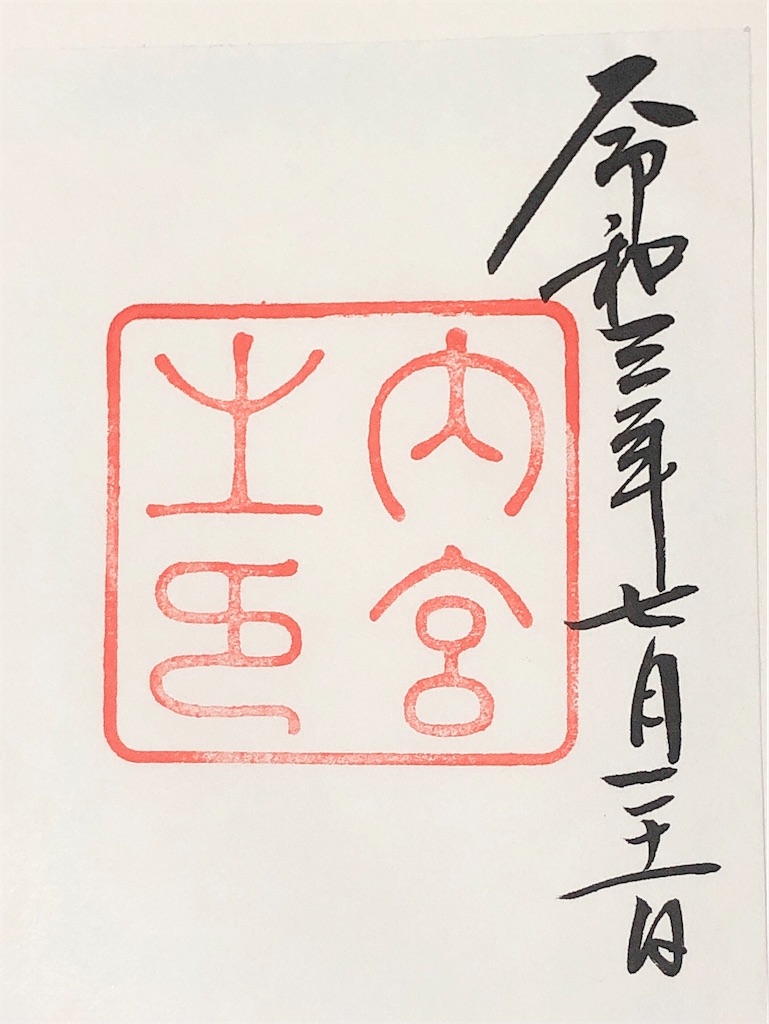 令和三年七月二十一日
内宮
之印